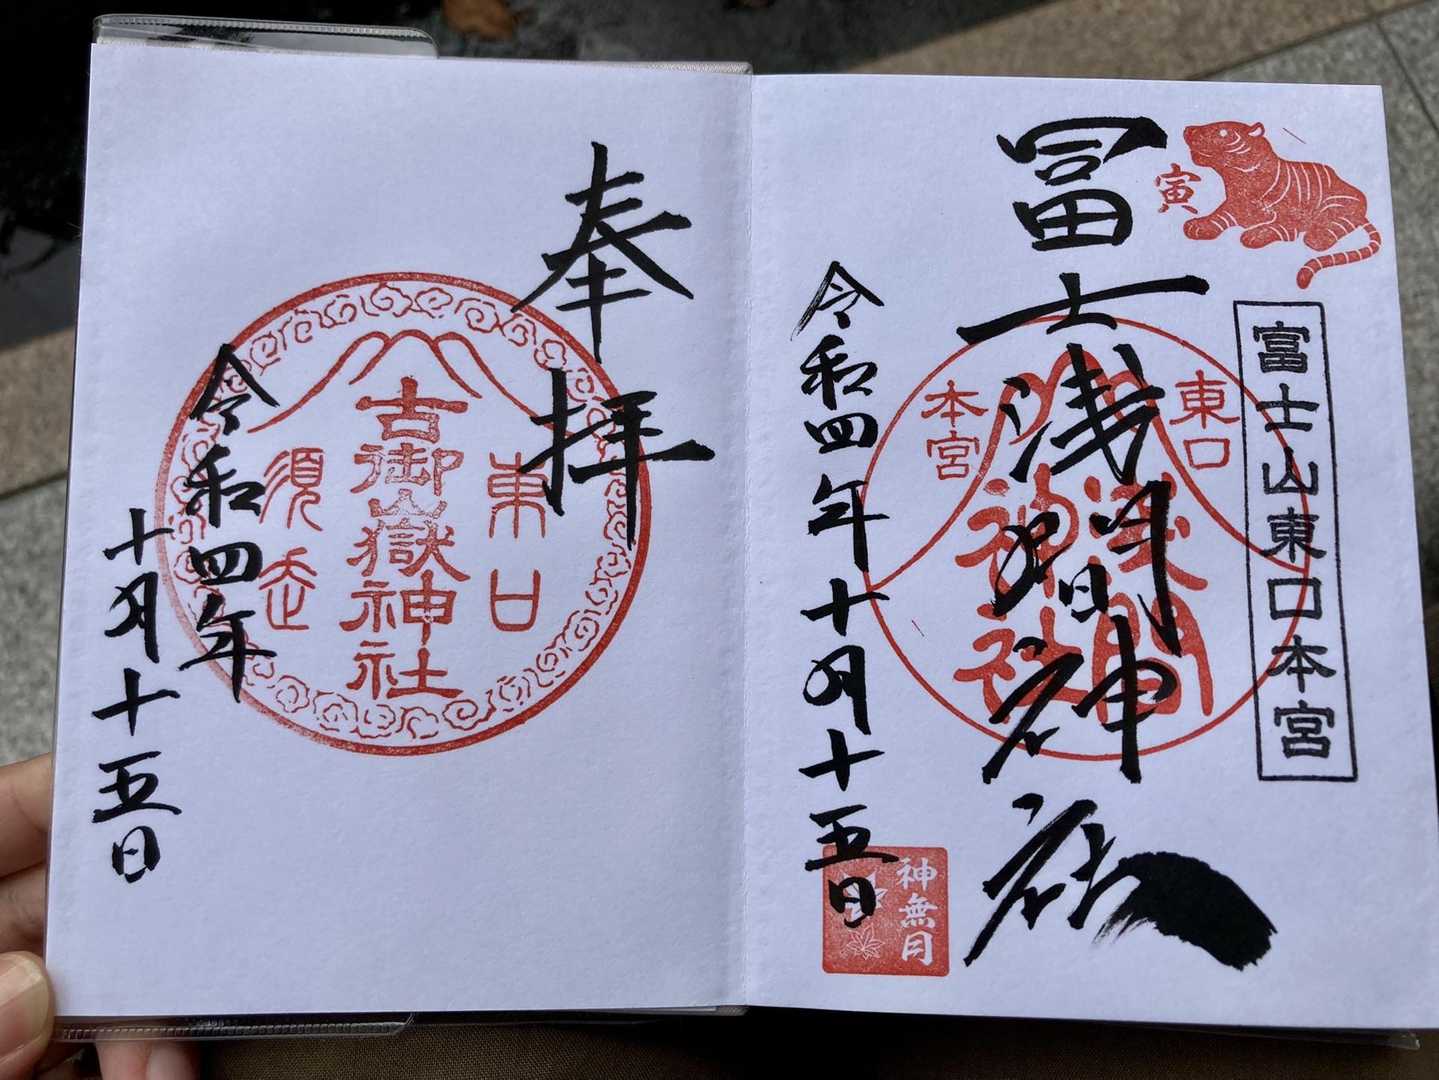 寅
富士山東口本宮
冨士浅間神社
東口
本宮
浅間
神社
令和四年十月十五日
神無月
奉拝
東口
古御嶽神社
須走
令和四年
十月十五日